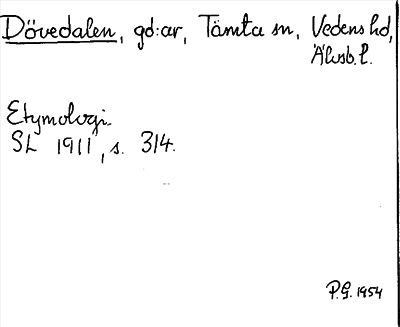 Dövedalen, gd:ar, Tämta sn, Vedens hd,
Älvsb. l.
Etymologi.
SL 1911, s. 314.
P.G. 1954